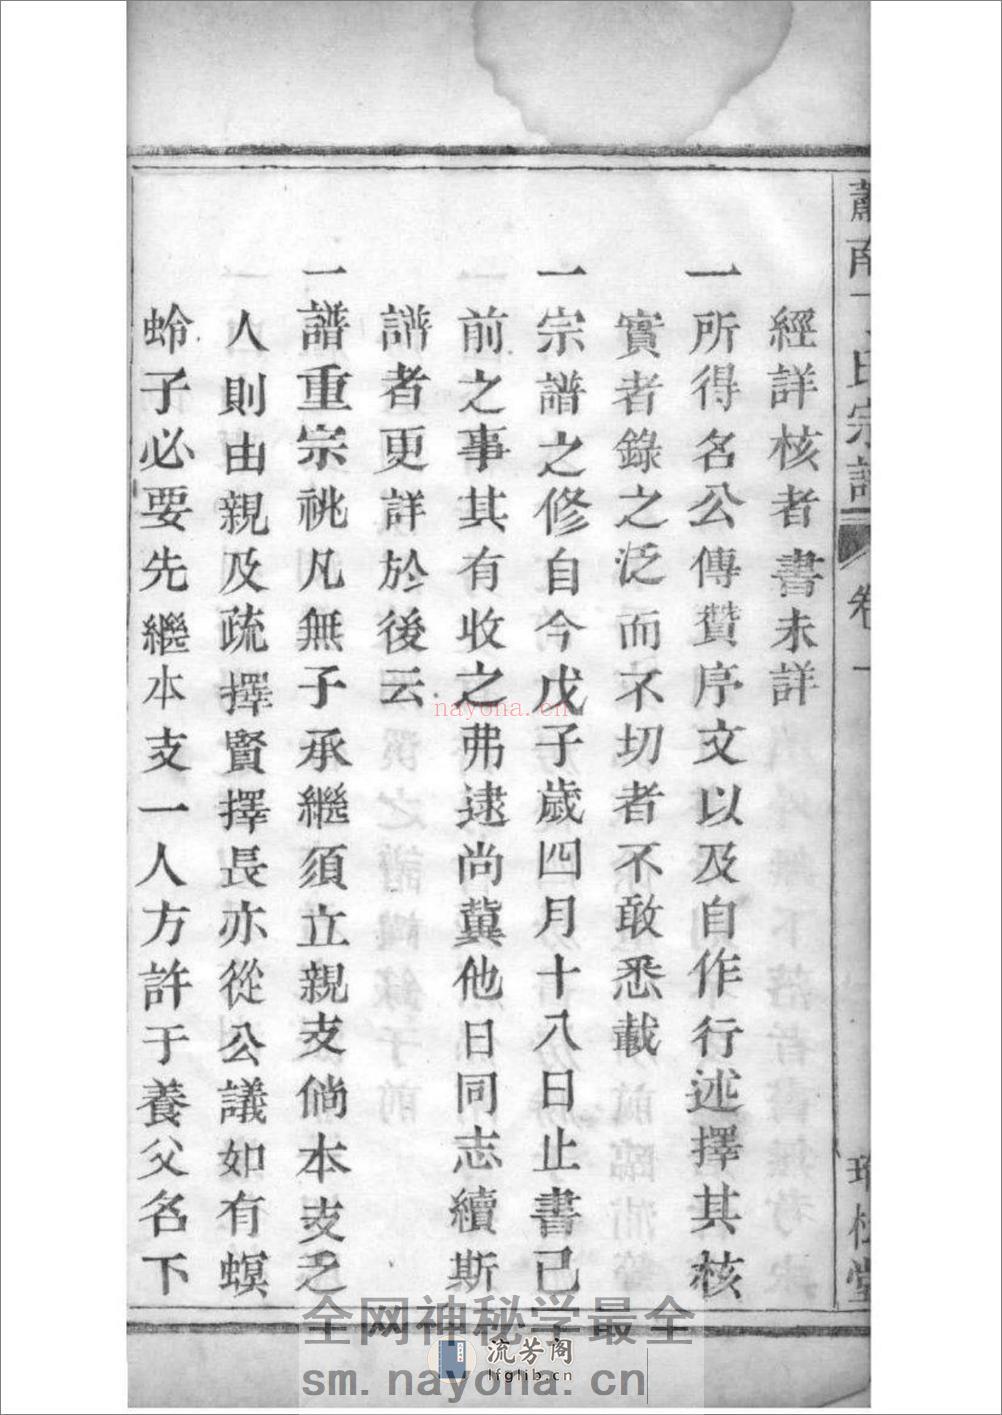 經詳核者書未詳
一所得名公傳贊序文以及自作行述擇其核
實者錄之泛而不切者不敢悉載
一宗譜之修自今戊子歲四月十八日止書已
前之事其有收之弗逮尚冀他日同志續斯
譜者更詳於後云
一譜重宗祧凡無子承繼須立親支倘本支乏
人則由親及疏擇賢擇長亦從公議如有螟
蛉子必要先繼本支一人方許于養父名下
氏宗譜
卷一
nayona.cn
全网神秘学最全
流芳阁
lfglib.cn
sm.nayona.cn